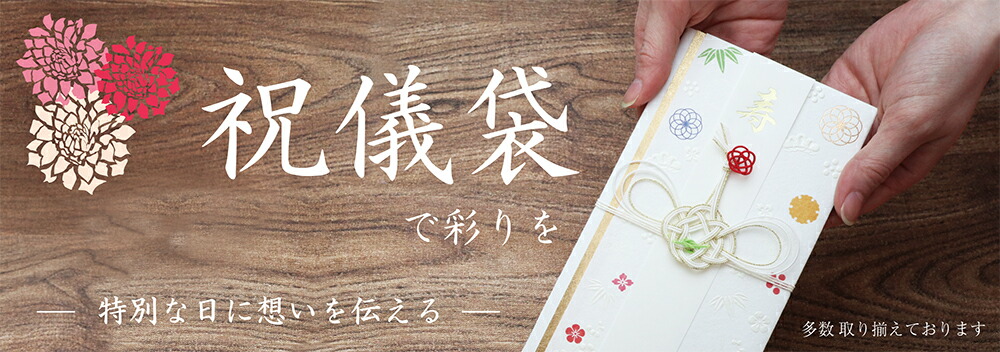 祝儀袋
で彩りを
特別な日に想いを伝える
寿
多数取り揃えております